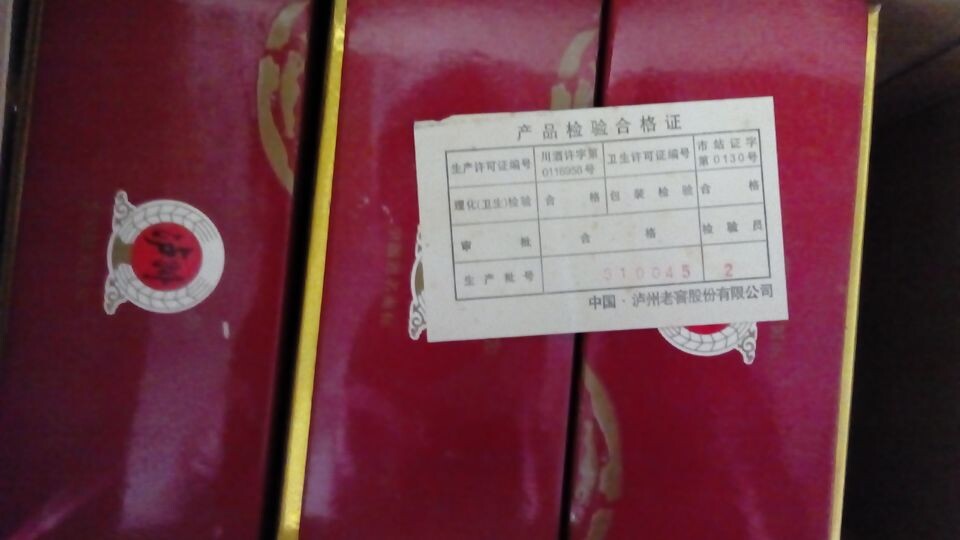 产品检验合格证
生产许可证编号 川酒许字第0116956号 卫生许可证编号 市站证字第0130号
理化(卫生)检验 合格 包装检验 合格
审批 合格 检验员
生产批号 910045 2
中国·泸州老窖股份有限公司